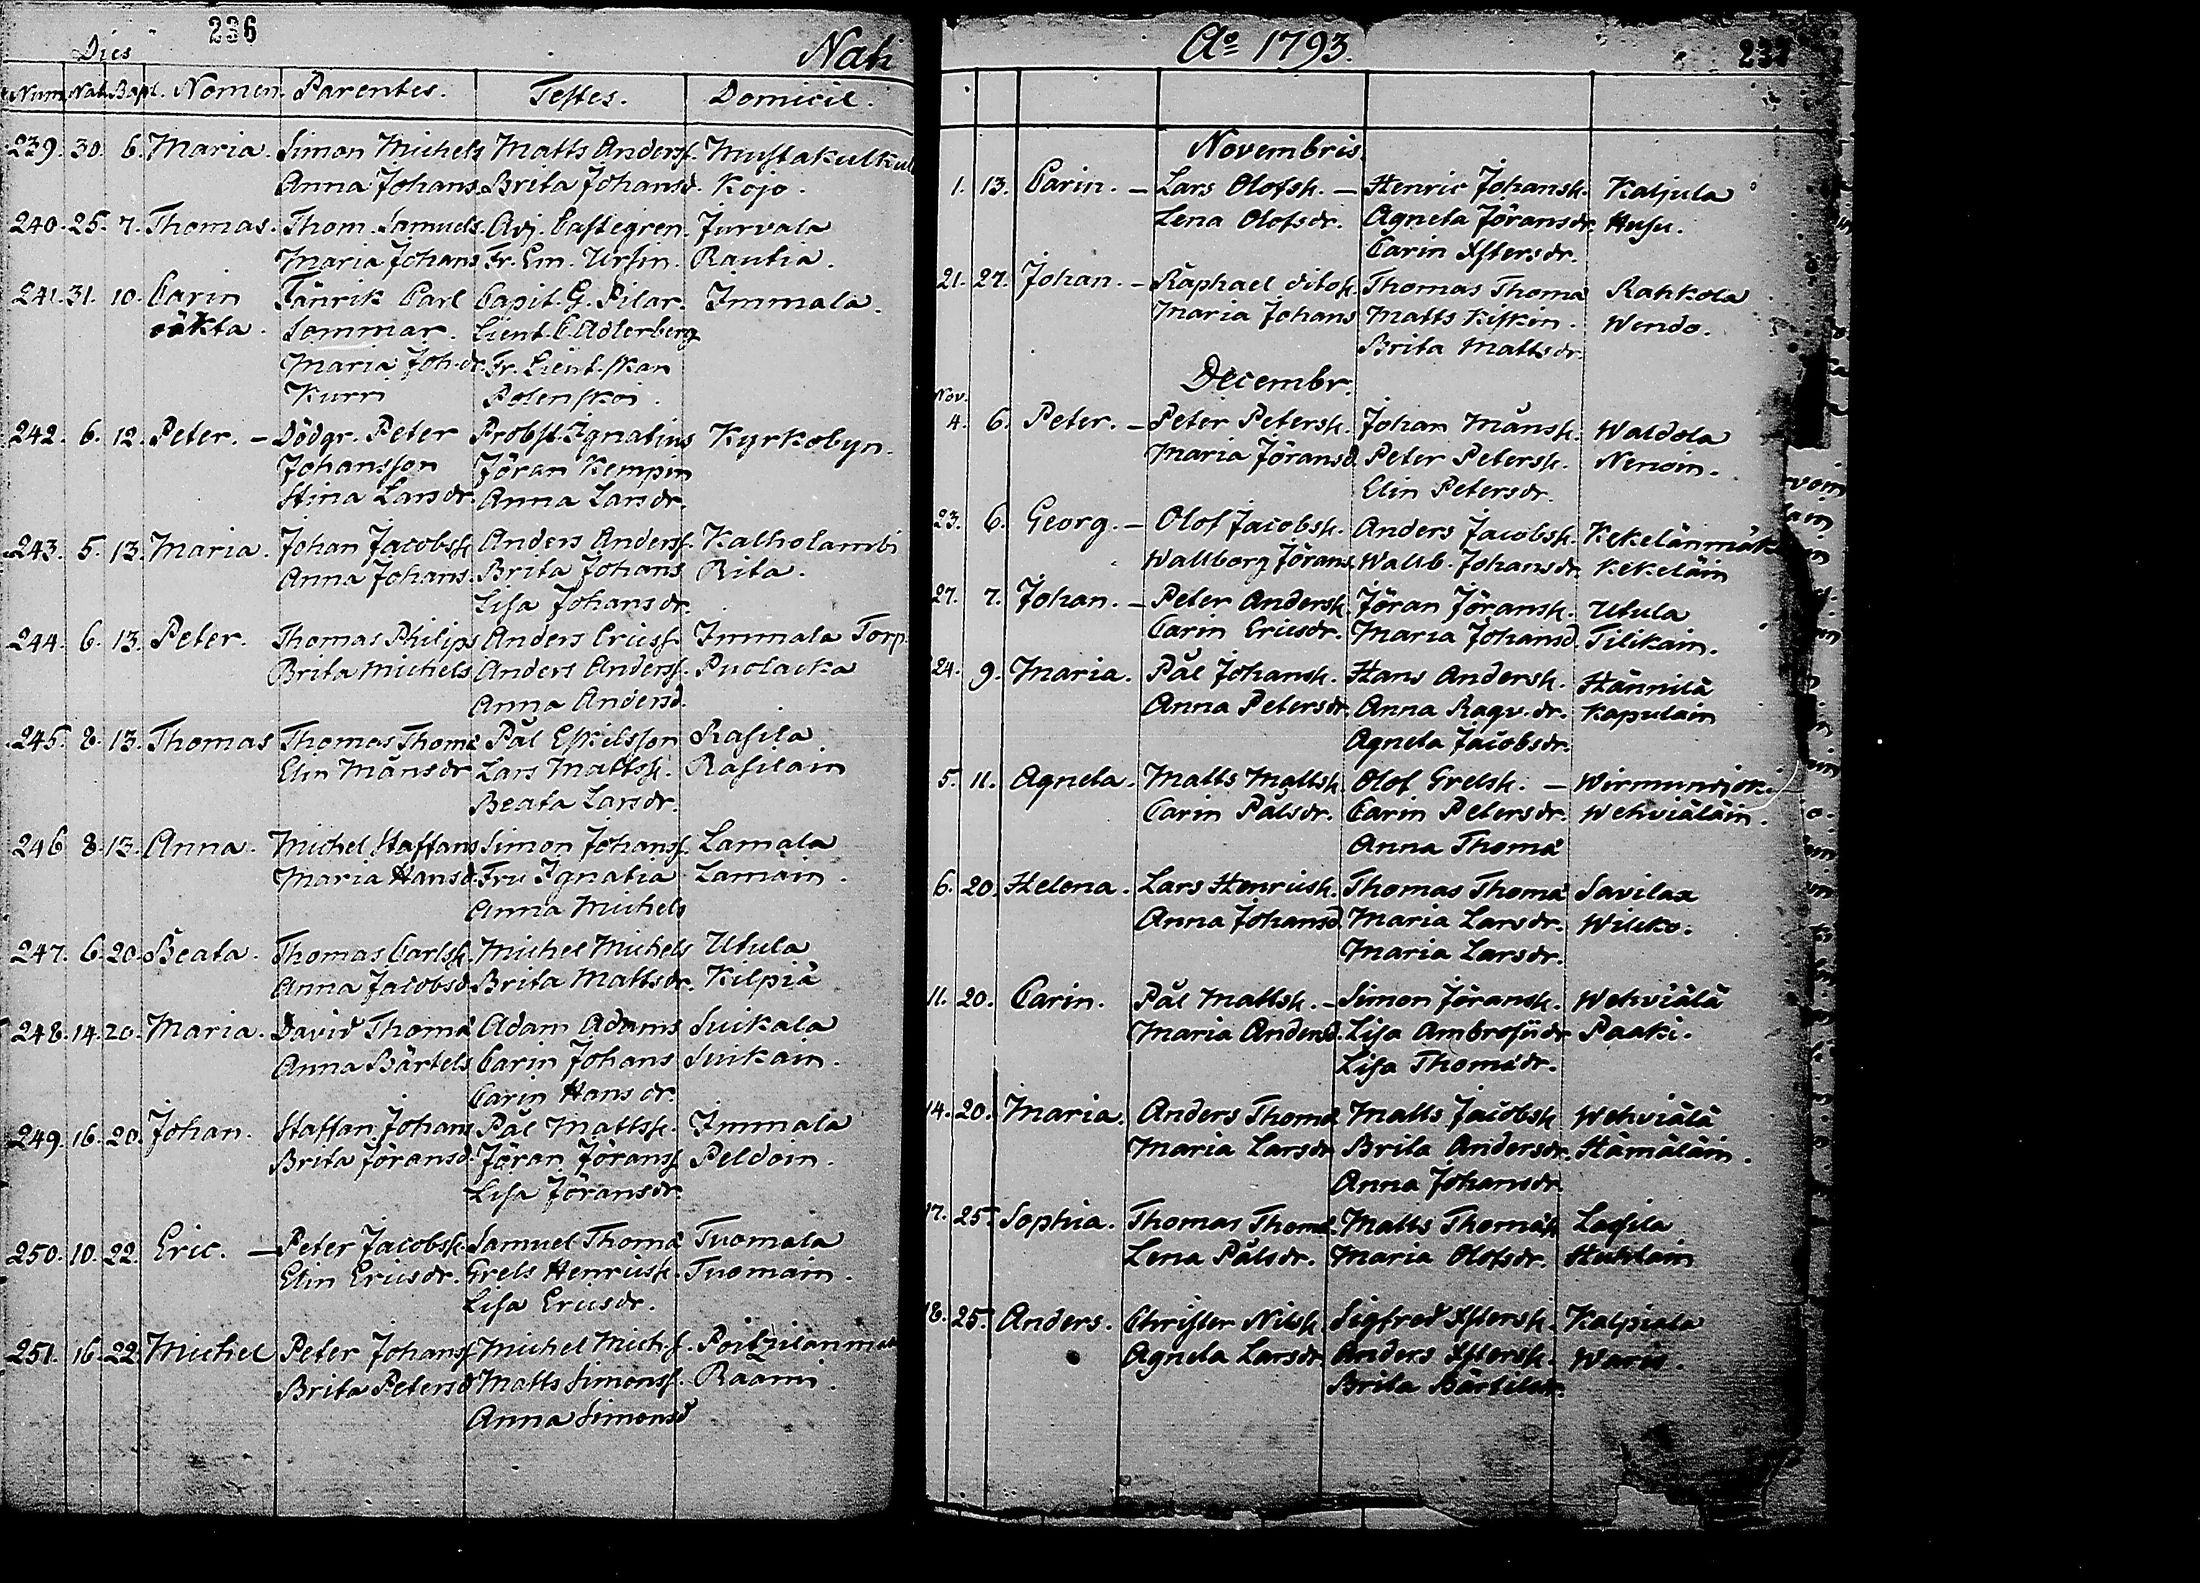 236
Dies
Nati
Num. Nat. Bapt. Nomen. Parentes. Testes. Domicil.
239. 30. 6. Maria. Simon Michels Matts Andersſ. Mustakulkul
Anna Johans Brita Johansd. Kojo.
240. 25. 7. Thomas. Thom. Samuels. Adj. Castegren. Jurvala
Maria Johans Fr. Em. Ursin. Rautia.
241. 31. 10. Carin Fänrik Carl Capit. G. Pilar. Immala.
oäkta. Sommar. Lieut. C. Adlerberg
Maria Joh.dr. Fr. Lieut.skan
Kurri Polenskoi.
242. 6. 12. Peter. – Dödgr. Peter Probst. Ignatius Kyrkobyn.
Johansson Jöran Kempin
Stina Larsdr. Anna Larsdr.
243. 5. 13. Maria. Johan Jacobsſ. Anders Andersſ. Kalholambi
Anna Johans. Brita Johans Rita.
Lisa Johansdr.
244. 6. 13. Peter. Thomas Philips Anders Ericsſ. Immala Torp.
Brita Michels Anders Andersſ. Puolacka
Anna Andersd.
245. 8. 13. Thomas Thomas Thomæ Pål Eskilsson Rasila
Elin Månsdr Lars Mattsſ. Rasilain
Beata Larsdr.
246 8. 13. Anna. Michel Staffans Simon Johansſ. Lamala
Maria Hansd. Fru Ignatia Lamain.
Anna Michels
247. 6. 20. Beata. Thomas Carlsſ. Michel Michels Utula
Anna Jacobsd. Brita Mattsdr. Kilpiä
248. 14. 20. Maria. David Thomæ Adam Adams Suikala
Anna Bärtels Carin Johans Suikain.
Carin Hansdr.
249. 16. 20. Johan. Staffan Johans Pål Mattsſ. Immala
Brita Jöransd. Jöran Jöransſ. Peldoin.
Lisa Jöransdr.
250. 10. 22. Eric. – Peter Jacobsſ. Samuel Thomæ Tuomala
Elin Ericsdr. Grels Henricsſ. Tuomain.
Lisa Ericsdr.
251. 16. 22. Michel Peter Johansſ. Michel Mich.ſ.
Brita Petersd Matts Simonsſ. Raami.
Anna Simonsd
Ao 1793.
237
Novembris
1. 13. Carin. – Lars Olofsſ. – Henric Johansſ. Kaljula
Lena Olofsdr. Agneta Jöransdr. Husu.
Carin Xstersdr.
21. 27. Johan. – Raphael Thomas Thomæ Rahkola
Maria Johans Matts Kiskin. Wendo.
Brita Mattsdr.
Decembr.
Nov.
4. 6. Peter. – Peter Petersſ. Johan Månsſ. Waldola
Maria Jöransd. Peter Petersſ. Nenoin.
Elin Petersdr.
23. 6. Georg. – Olof Jacobsſ. Anders Jacobsſ. Kekelänmäk
Wallborg Jörans. Wallb. Johansdr. Kekeläin
27. 7. Johan. – Peter Andersſ. Jöran Jöransſ. Utula
Carin Ericsdr. Maria Johansd. Tilikain.
24. 9. Maria. Pål Johansſ. Hans Andersſ. Hännilä
Anna Petersdr. Anna Ragv.dr. Kapulain
Agneta Jacobsdr.
5. 11. Agneta. Matts Mattsſ. Olof Grelsſ. – Wirmundjok
Carin Pålsdr. Carin Petersdr. Wehviäläin.
Anna Thomæ
6. 20. Helena. Lars Henricsſ. Thomas Thomæ Savilax
Anna Johansd. Maria Larsdr. Wilcko.
Maria Larsdr.
11. 20. Carin. Pål Mattsſ. – Simon Jöransſ. Wehviälä
Maria Andersd. Lisa Ambrosiidr Paaki.
Lisa Thomædr.
14. 20. Maria. Anders Thomæ Matts Jacobsſ Wehviälä
Maria Larsdr Brita Andersdr. Hämäläin.
Anna Johansdr.
17. 25. Sophia. Thomas Thomæ. Matts Thomæſ Lassila
Lena Pålsdr. Maria Olofsdr. Huhtain
18. 25. Anders. Christer Nilsſ. Sigfred Xstersſ. Kalpiala
Agneta Larsdr. Anders Xstersſ. Waris.
Brita Bärtilsdr.